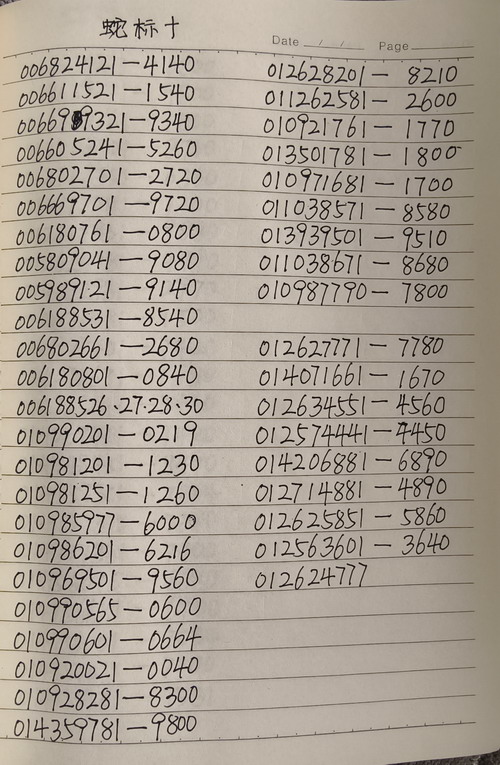 蛇标十
Date / / Page
006824121-4140
006611521-1540
006699321-9340
006605241-5260
006802701-2720
006669701-9720
006180761-0800
005809041-9080
005989121-9140
006188531-8540
006802661-2680
006180801-0840
006188526·27·28·30
010990201-0219
010981201-1230
010981251-1260
010985977-6000
010986201-6216
010969501-9560
010990565-0600
010990601-0664
010920021-0040
010928281-8300
014359781-9800
012628201-8210
011262581-2600
010921761-1770
013501781-1800
010971681-1700
011038571-8580
013939501-9510
011038671-8680
010987790-7800
012627771-7780
014071661-1670
012634551-4560
012574441-4450
014206881-6890
012714881-4890
012625851-5860
012563601-3640
012624777